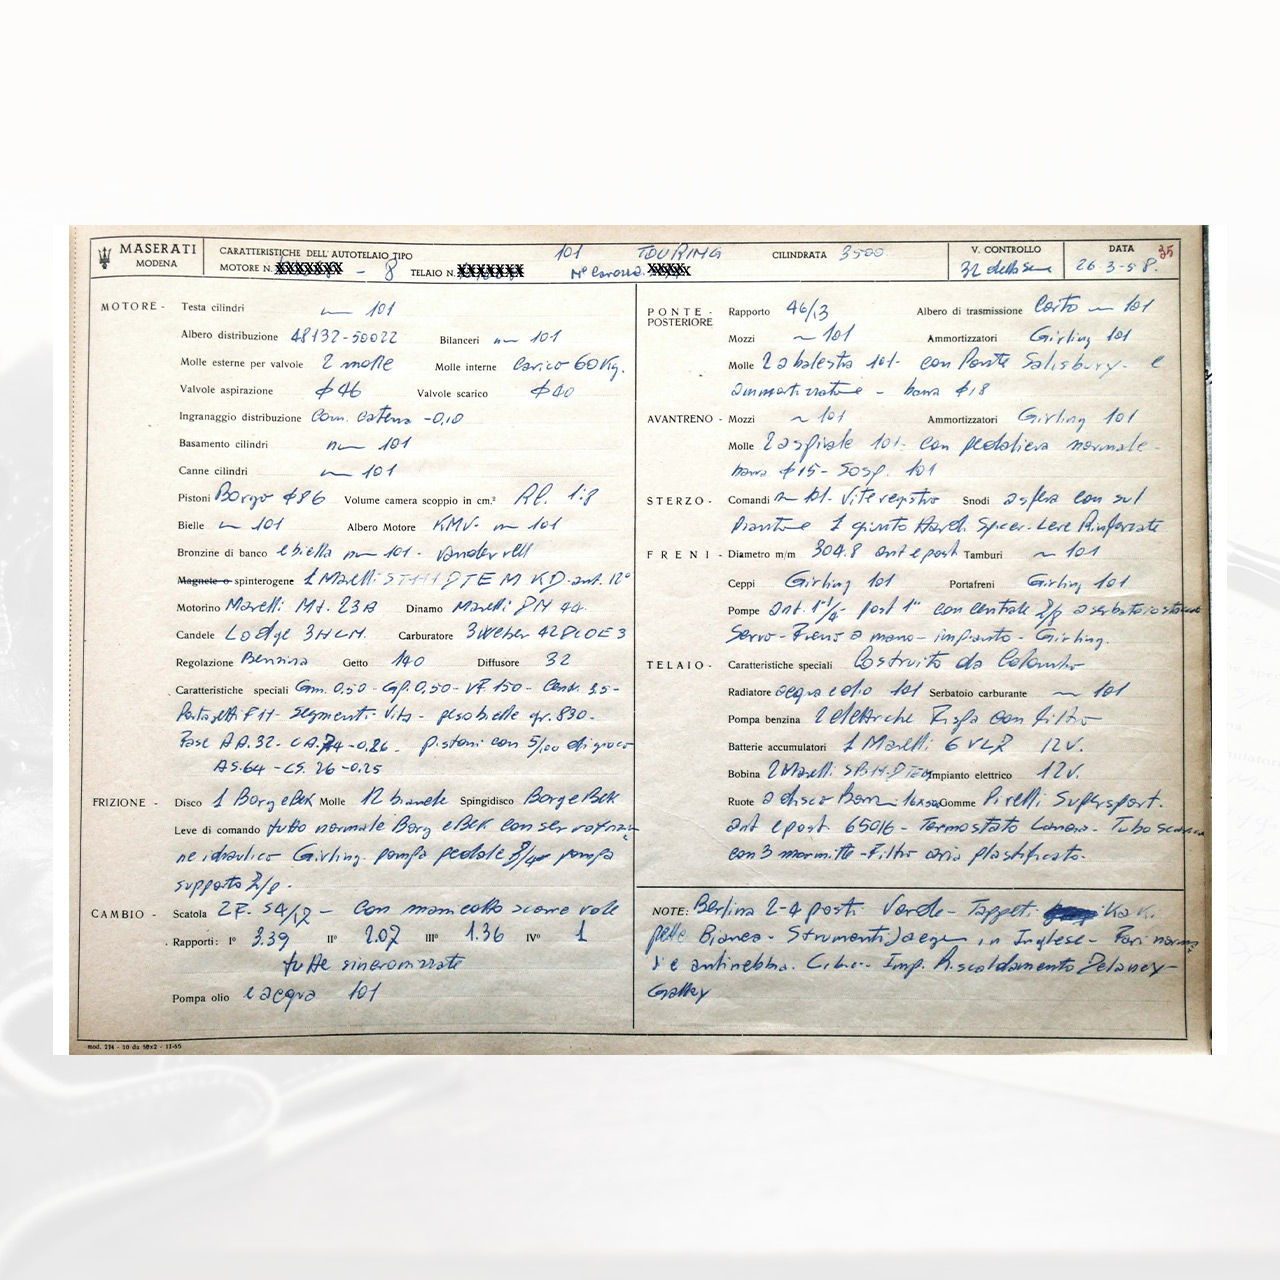 MASERATI
MODENA
CARATTERISTICHE DELL'AUTOTELAIO TIPO 101 TOURING CILINDRATA 3500
MOTORE N. - 8 TELAIO N. N° Carozz.
V. CONTROLLO
DATA 35
26-3-58.
MOTORE - Testa cilindri 101
Albero distribuzione 48132-50022 Bilanceri 101
Molle esterne per valvole 2 molle Molle interne Carico 60Kg.
Valvole aspirazione φ46 Valvole scarico φ40
Ingranaggio distribuzione Com. catena -0,10
Basamento cilindri 101
Canne cilindri 101
Pistoni Borgo φ86 Volume camera scoppio in cm.³ 1:8
Bielle 101 Albero Motore KMV- 101
Bronzine di banco e biella 101- Vandervell
Magnete o spinterogene 1 Marelli ant. 12°
Motorino Marelli Mt. 23A Dinamo Marelli DN 44.
Candele Lodge 3HLN. Carburatore 3 Weber 42DCOE3
Regolazione Benzina Getto 140 Diffusore 32
Caratteristiche speciali Gm. 0,50 - GP. 0,50 - 150 - 3,5 -
Portagetti F11 - Segmenti Vits - peso bielle gr. 830.
Fase AA.32 - -0.26 - pistoni con 5/100 di gioco
AS.64 - CS. 26 -0.25
FRIZIONE - Disco 1 BorgeBEK Molle 12 bianche Spingidisco BorgeBEK
Leve di comando tutto normale Borg eBEK con
ne idraulico Girling. pompa pedale 3/4 pompa
supporto 7/8.
CAMBIO - Scatola ZF. S4/12 - con manicotto
Rapporti: I° 3.39 II° 2.07 III° 1.36 IV° 1
tutte sincronizzate
Pompa olio e acqua 101
mod. 214 - 10 da 50x2 - 11-55
PONTE - POSTERIORE Rapporto 46/13 Albero di trasmissione Corto 101
Mozzi 101 Ammortizzatori Girling 101
Molle 2 a balestra 101- con Ponte Salisbury- e
ammortizzatore - barra φ18
AVANTRENO - Mozzi 101 Ammortizzatori Girling 101
Molle 2 a spirale 101- con pedaliera normale-
barra φ15 - Sosp. 101
STERZO - Comandi 101- Vite registro Snodi a sfera con sul
Piantone 1 giunto Hardi Spicer - Leve Rinforzate
FRENI - Diametro m/m 304.8 ant e post Tamburi 101
Ceppi Girling 101 Portafreni Girling 101
Pompe ant. 1"1/4 - post 1" con centrale 7/8
Servo-Freno a mano - impianto - Girling.
TELAIO - Caratteristiche speciali Costruito da Colombo
Radiatore acqua e olio 101 Serbatoio carburante 101
Pompa benzina 2 elettriche Fispa con filtro
Batterie accumulatori 1 Marelli 12v.
Bobina 2 Marelli Impianto elettrico 12v.
Ruote a disco Gomme Pirelli Supersport.
ant e post 650/6 - Termostato - Tubo
con 3 marmitte - Filtro aria plastificato.
NOTE: Berlina 2-4 posti Verde - Tappeti Kaki.
pelle Bianca - Strumenti Jaeger in Inglese - Fari
antinebbia. Imp. Riscaldamento Delaney-
Gallay